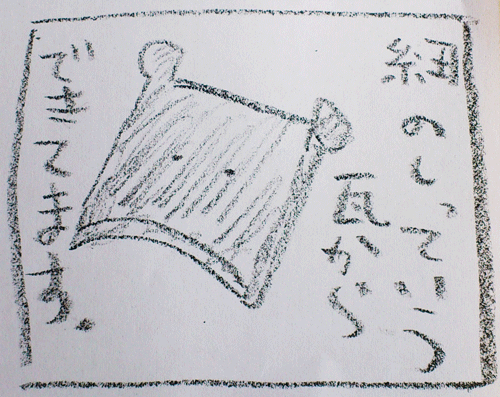 紐のしっていう
瓦から
できてます。